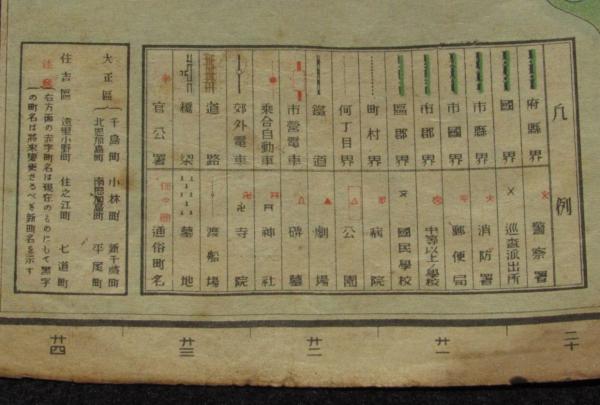 凡例
府縣界
國界
市縣界
市國界
市郡界
區郡界
町村界
何丁目界
鐵道
市營電車
乘合自動車
郊外電車
道路
橋梁
官公署
警察署
巡査派出所
消防署
郵便局
中等以上ノ學校
國民學校
病院
公園
劇場
碑墓
神社
寺院
渡船場
墓地
通俗町名
大正區
千島町 小林町 新千歳町
北恩加島町 南恩加島町 平尾町
住吉區
遠里小野町 住之江町 七道町
注意
右方面の赤字町名は現在のものにして黑字
の町名は將來變更さるべき新町名を示す
二十
廿一
廿二
廿三
廿四